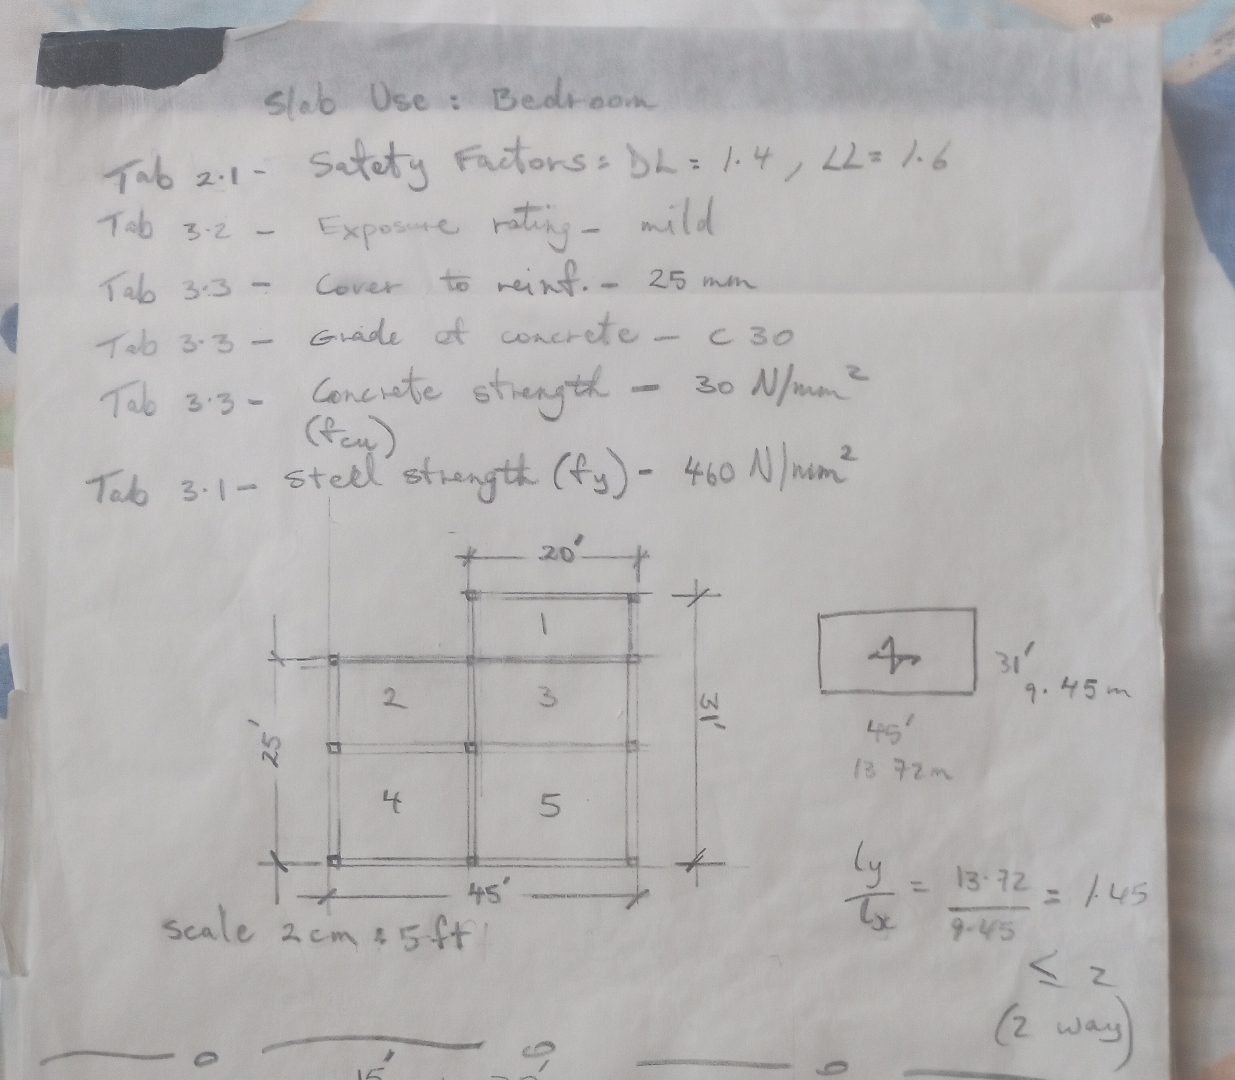 Slab Use : Bedroom
Tab 2.1 - Safety Factors: DL = 1.4 , LL = 1.6
Tab 3.2 - Exposure rating - mild
Tab 3.3 - Cover to reinf. - 25 mm
Tab 3.3 - Grade of concrete - C 30
Tab 3.3 - Concrete strength - 30 N/mm²
(fcu)
Tab 3.1 - Steel strength (fy) - 460 N/mm²
20'
1
2
3
25'
31'
4
5
45'
scale 2cm : 5ft
31'
9.45m
45'
13.72m
ly/lx = 13.72/9.45 = 1.45
≤ 2
(2 way)
15'